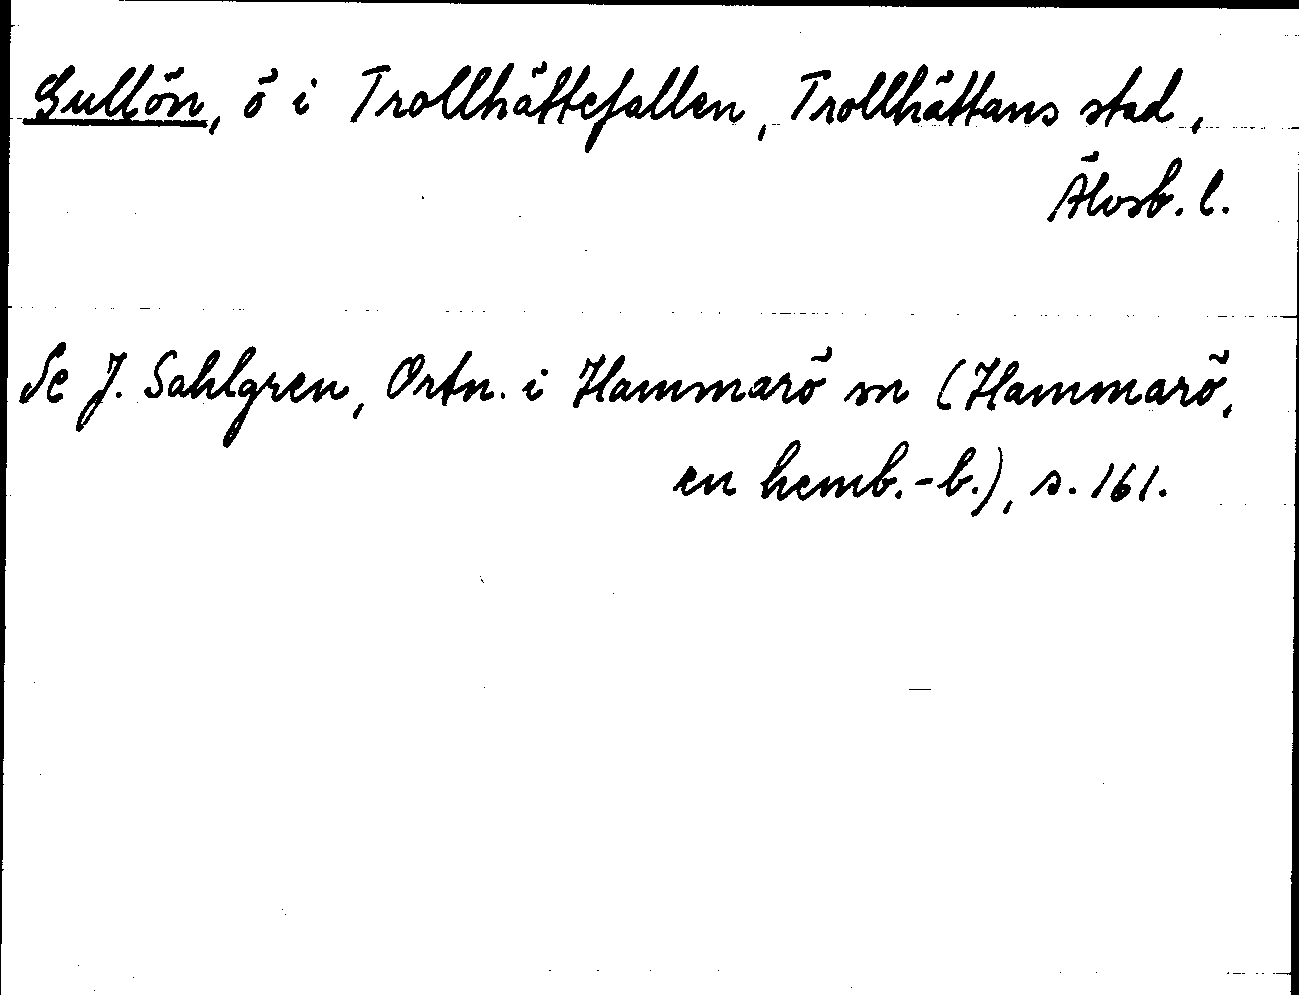 Gullön, ö i Trollhättefallen, Trollhättans stad,
Älvsb. l.
Se J. Sahlgren, Ortn. i Hammarö sn (Hammarö,
en hemb.-b.), s. 161.